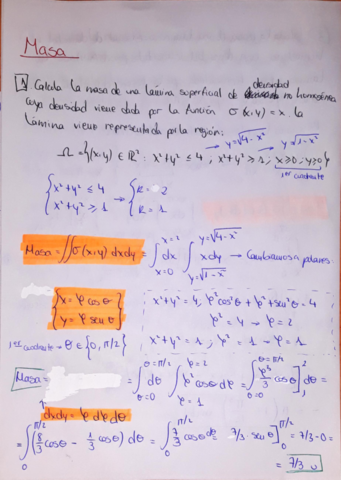 Masa
1 Calcula la masa de una lámina superficial de densidad no homogénea
cuya densidad viene dada por la función σ(x,y) = x. la
lámina viene representada por la región:
→ y=√4-x² → y=√1-x²
Ω = {(x,y) ∈ ℝ² : x²+y² ≤ 4, x²+y² ≥ 1, x≥0, y≥0}
1er cuadrante
{ x²+y² ≤ 4 → { R = 2
{ x²+y² ≥ 1 { R = 1
Masa = ∬σ(x,y) dxdy = ∫ x=0 x=2 dx ∫ y=√1-x² y=√4-x² x dy → Cambiamos a polares.
{ x = ρ cos θ
{ y = ρ sen θ
x²+y² = 4, ρ² cos²θ + ρ² + sen²θ = 4
ρ² = 4 → ρ = 2
x²+y² = 1, ρ² = 1 → ρ = 1
1er cuadrante → θ ∈ {0, π/2}
Masa = ∫ θ=0 θ=π/2 dθ ∫ ρ=1 ρ=2 ρ² cos θ dρ = ∫ θ=0 θ=π/2 ρ³/3 cos θ ]₁² dθ =
dxdy = ρ dρ dθ
= ∫₀^π/2 (8/3 cos θ - 1/3 cos θ) dθ = ∫₀^π/2 7/3 cos θ dθ = 7/3 · sen θ ]₀^π/2 = 7/3 - 0 =
= 7/3 u